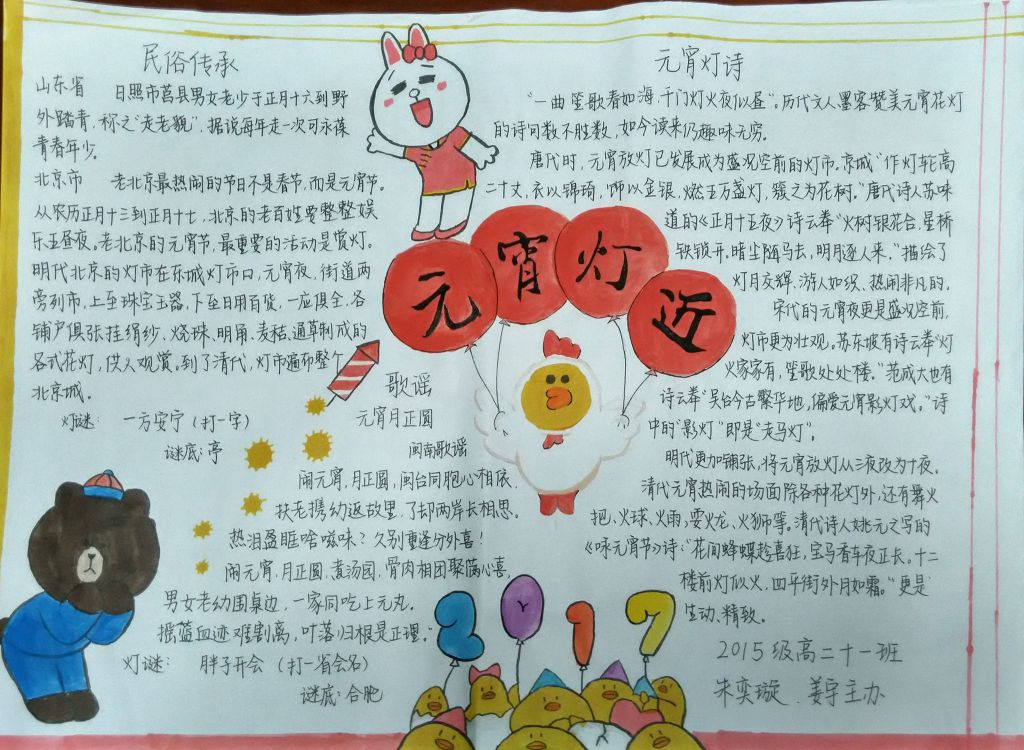 民俗传承
山东省 日照市莒县男女老少于正月十六到野
外踏青，称之"走老貌"，据说每年走一次可永葆
青春年少。
北京市 老北京最热闹的节日不是春节，而是元宵节。
从农历正月十三到正月十七，北京的老百姓要整整娱
乐五昼夜。老北京的元宵节，最重要的活动是赏灯。
明代北京的灯市在东城灯市口，元宵夜、街道两
旁列市，上至珠宝玉器，下至日用百货，一应俱全，各
铺户俱张挂绢纱、烧珠、明角、麦秸、通草制成的
各式花灯，供人观赏。到了清代，灯市遍布整个
北京城。
灯谜： 一方安宁（打一字）
谜底：亭
歌谣
元宵月正圆
闽南歌谣
闹元宵，月正圆，闽台同胞心相依，
扶老携幼返故里，了却两岸长相思。
热泪盈眶啥滋味？久别重逢分外喜！
闹元宵，月正圆，煮汤圆，骨肉相团聚满心喜，
男女老幼围桌边，一家同吃上元丸。
摇篮血迹难割离，叶落归根是正理。"
灯谜： 胖子开会（打一省会名）
谜底：合肥
元宵灯近
元宵灯诗
"一曲笙歌春如海，千门灯火夜似昼"。历代文人墨客赞美元宵花灯
的诗句数不胜数，如今读来仍趣味无穷。
唐代时，元宵放灯已发展成为盛况空前的灯市。京城"作灯轮高
二十丈，衣以锦琦，饰以金银，燃五万盏灯，簇之为花树。"唐代诗人苏味
道的《正月十五夜》诗云"火树银花合，星桥
铁锁开。暗尘随马去，明月逐人来。"描绘了
灯月交辉，游人如织、热闹非凡的。
宋代的元宵夜更是盛况空前，
灯市更为壮观。苏东坡有诗云"灯
火家家有，笙歌处处楼。"范成大也有
诗云"吴台今古繁华地，偏爱元宵影灯戏。"诗
中的"影灯"即是"走马灯"。
明代更加铺张，将元宵放灯从三夜改为十夜。
清代元宵热闹的场面除各种花灯外，还有舞火
把、火球、火雨，耍火龙、火狮等。清代诗人姚元之写的
《咏元宵节》诗："花间蜂蝶趁喜狂，宝马香车夜正长。十二
楼前灯似火，四平街外月如霜。"更是
生动、精致。
2 Y 1 7
2015级高二十一班
朱奕璇、姜宇主办